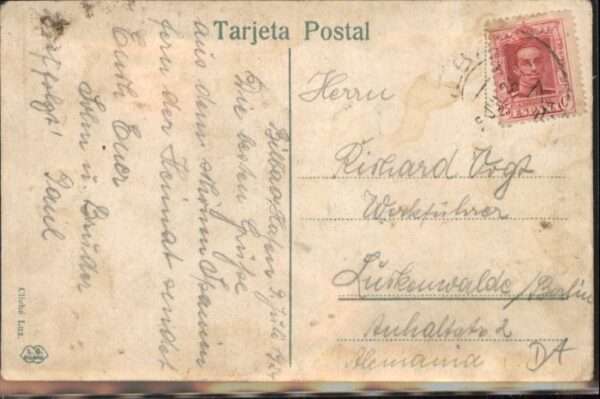 Tarjeta Postal
Bilbao, Hafen 9. Juli
Die besten Grüße
aus dem schönen Spanien
fern der Heimat sendet
Euch Euer
Sohn u. Bruder
Paul
folgt!
Herrn
Richard Vogt
Werkführer
Luckenwalde/Berlin
Anhaltstr 2
Alemania
Cliché Lux.